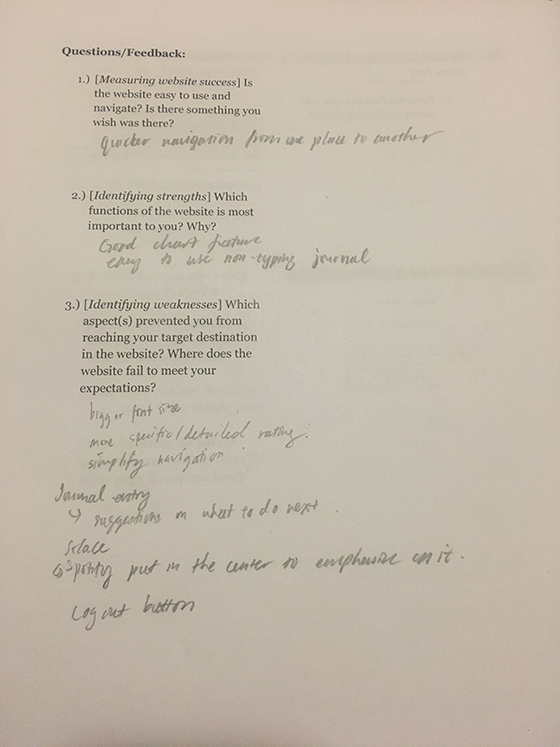 Questions/Feedback:
1.) [Measuring website success] Is
the website easy to use and
navigate? Is there something you
wish was there?
quicker navigation from one place to another
2.) [Identifying strengths] Which
functions of the website is most
important to you? Why?
Good chart feature
easy to use non-typing journal
3.) [Identifying weaknesses] Which
aspect(s) prevented you from
reaching your target destination
in the website? Where does the
website fail to meet your
expectations?
bigger font size
more specific/detailed rating.
simplify navigation
Journal entry
↳ suggestions on what to do next.
Solace
↳ Spotify put in the center to emphasize on it.
Log out button